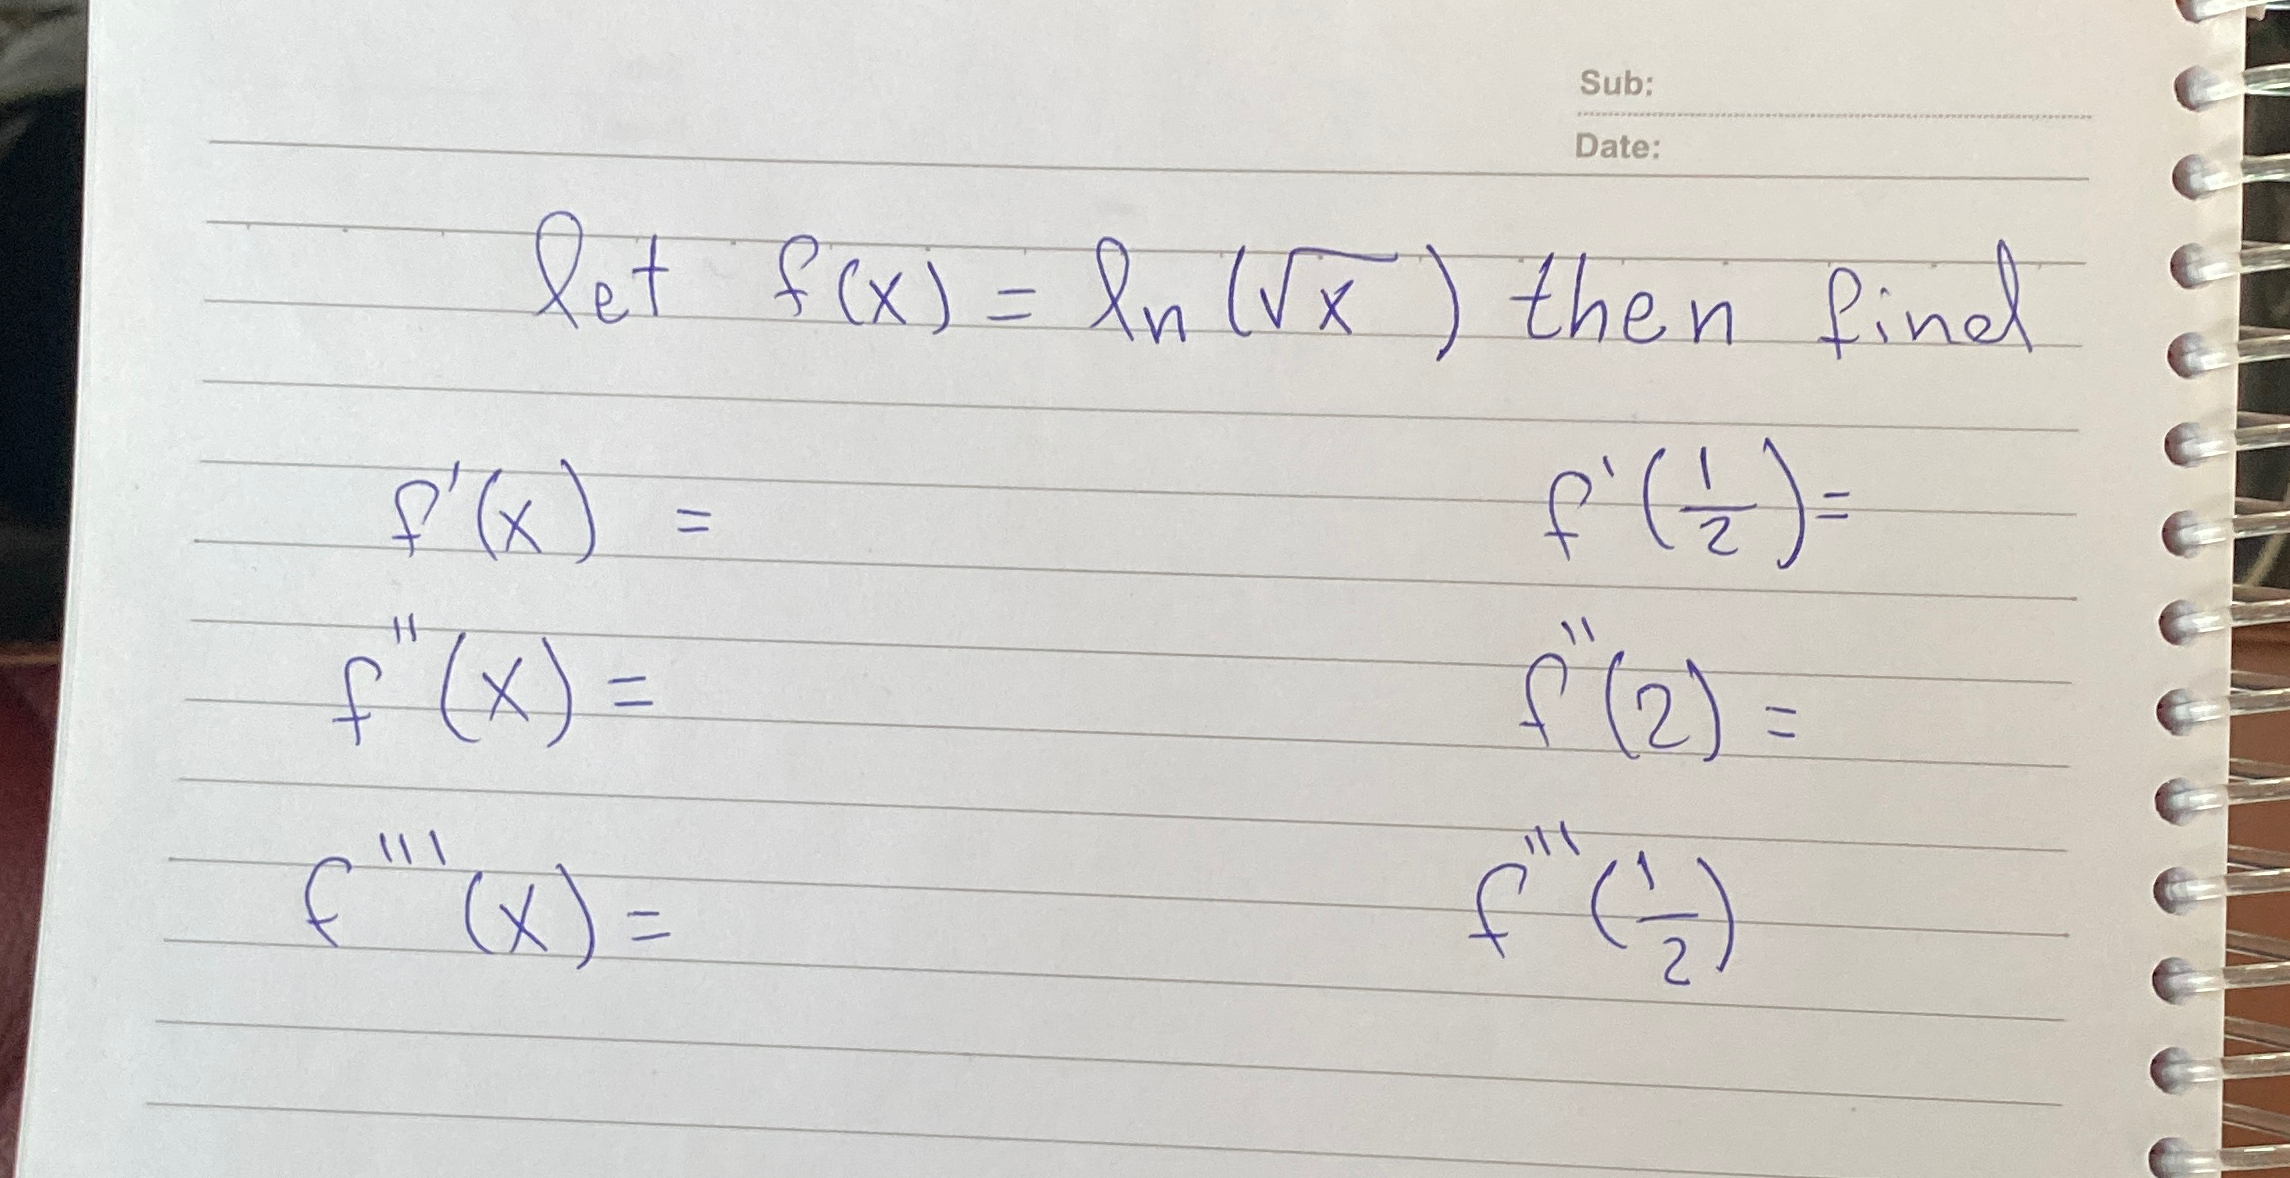 Sub:
Date:
let f(x) = ln(√x) then find
f'(x) = f'(1/2) =
f''(x) = f''(2) =
f'''(x) = f'''(1/2)